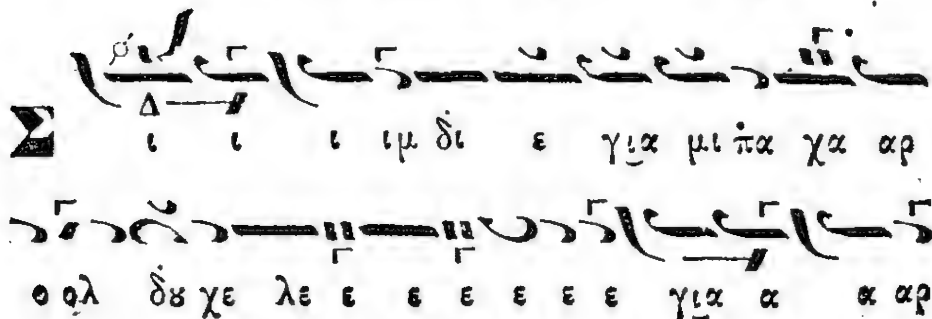 Σ ι ι ι ιμ δ̇ι ε γι̲α μι π̇α χα αρ
ο ο̣λ δ̇ȣ χε λε ε ε ε ε ε ε γι̲α α α αρ